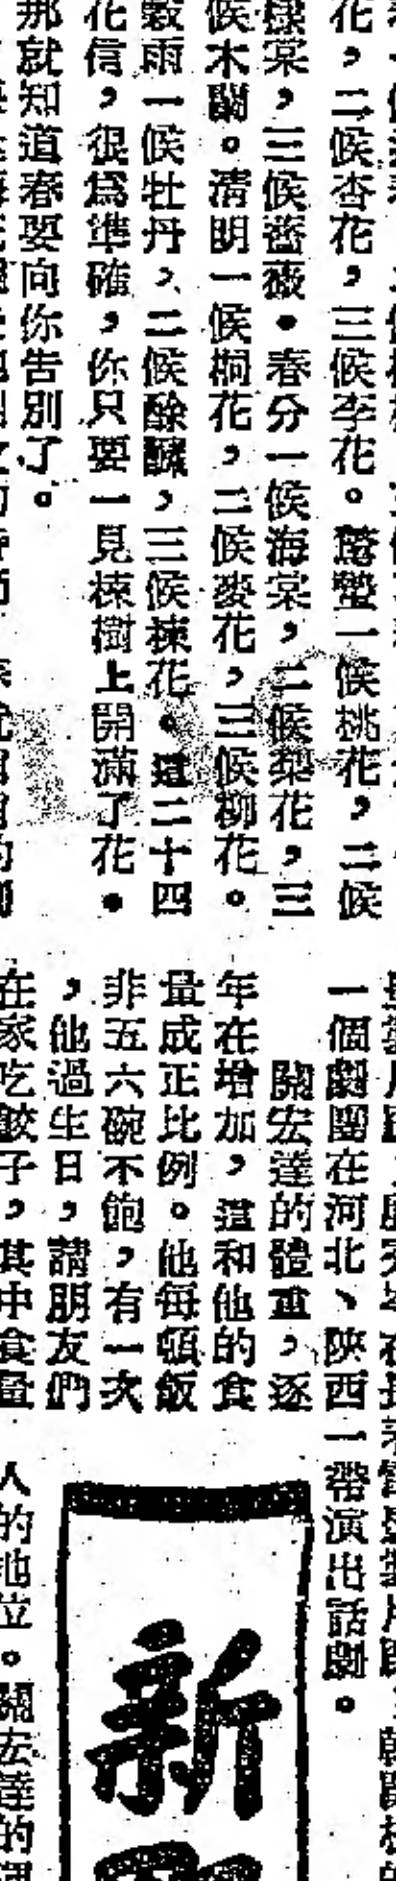 花，二候杏花，三候李花。驚蟄一候桃花，二候
棣棠，三候薔薇。春分一候海棠，二候梨花，三
候木蘭。清明一候桐花，二候麥花，三候柳花。
穀雨一候牡丹，二候酴醾，三候楝花。這二十四
花信，很爲準確，你只要一見楝樹上開滿了花。
那就知道春要向你告別了。
一個劇團在河北、陝西一帶演出話劇。
關宏達的體重，逐
年在增加，這和他的食
量成正比例。他每頓飯
非五六碗不飽，有一次
，他過生日，請朋友們
在家吃餃子，其中食量
人的地位。關宏達的
新